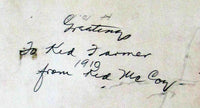 Greetings
To Ked Farmer
1919
from Ked McCoy